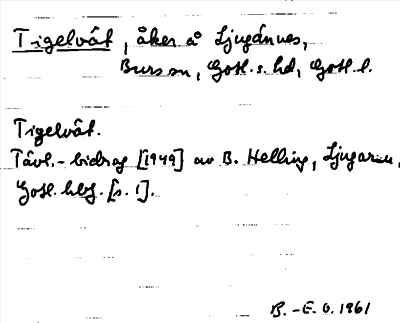 Tigelvät, åker å Ljugännes,
Burs sn, Gotl. s. hd, Gotl. l.
Tigelvät.
Tävl.-bidrag [1949] av B. Helling, Ljugarn,
Gotl. hbg. [s. 1].
B.-E. O. 1961